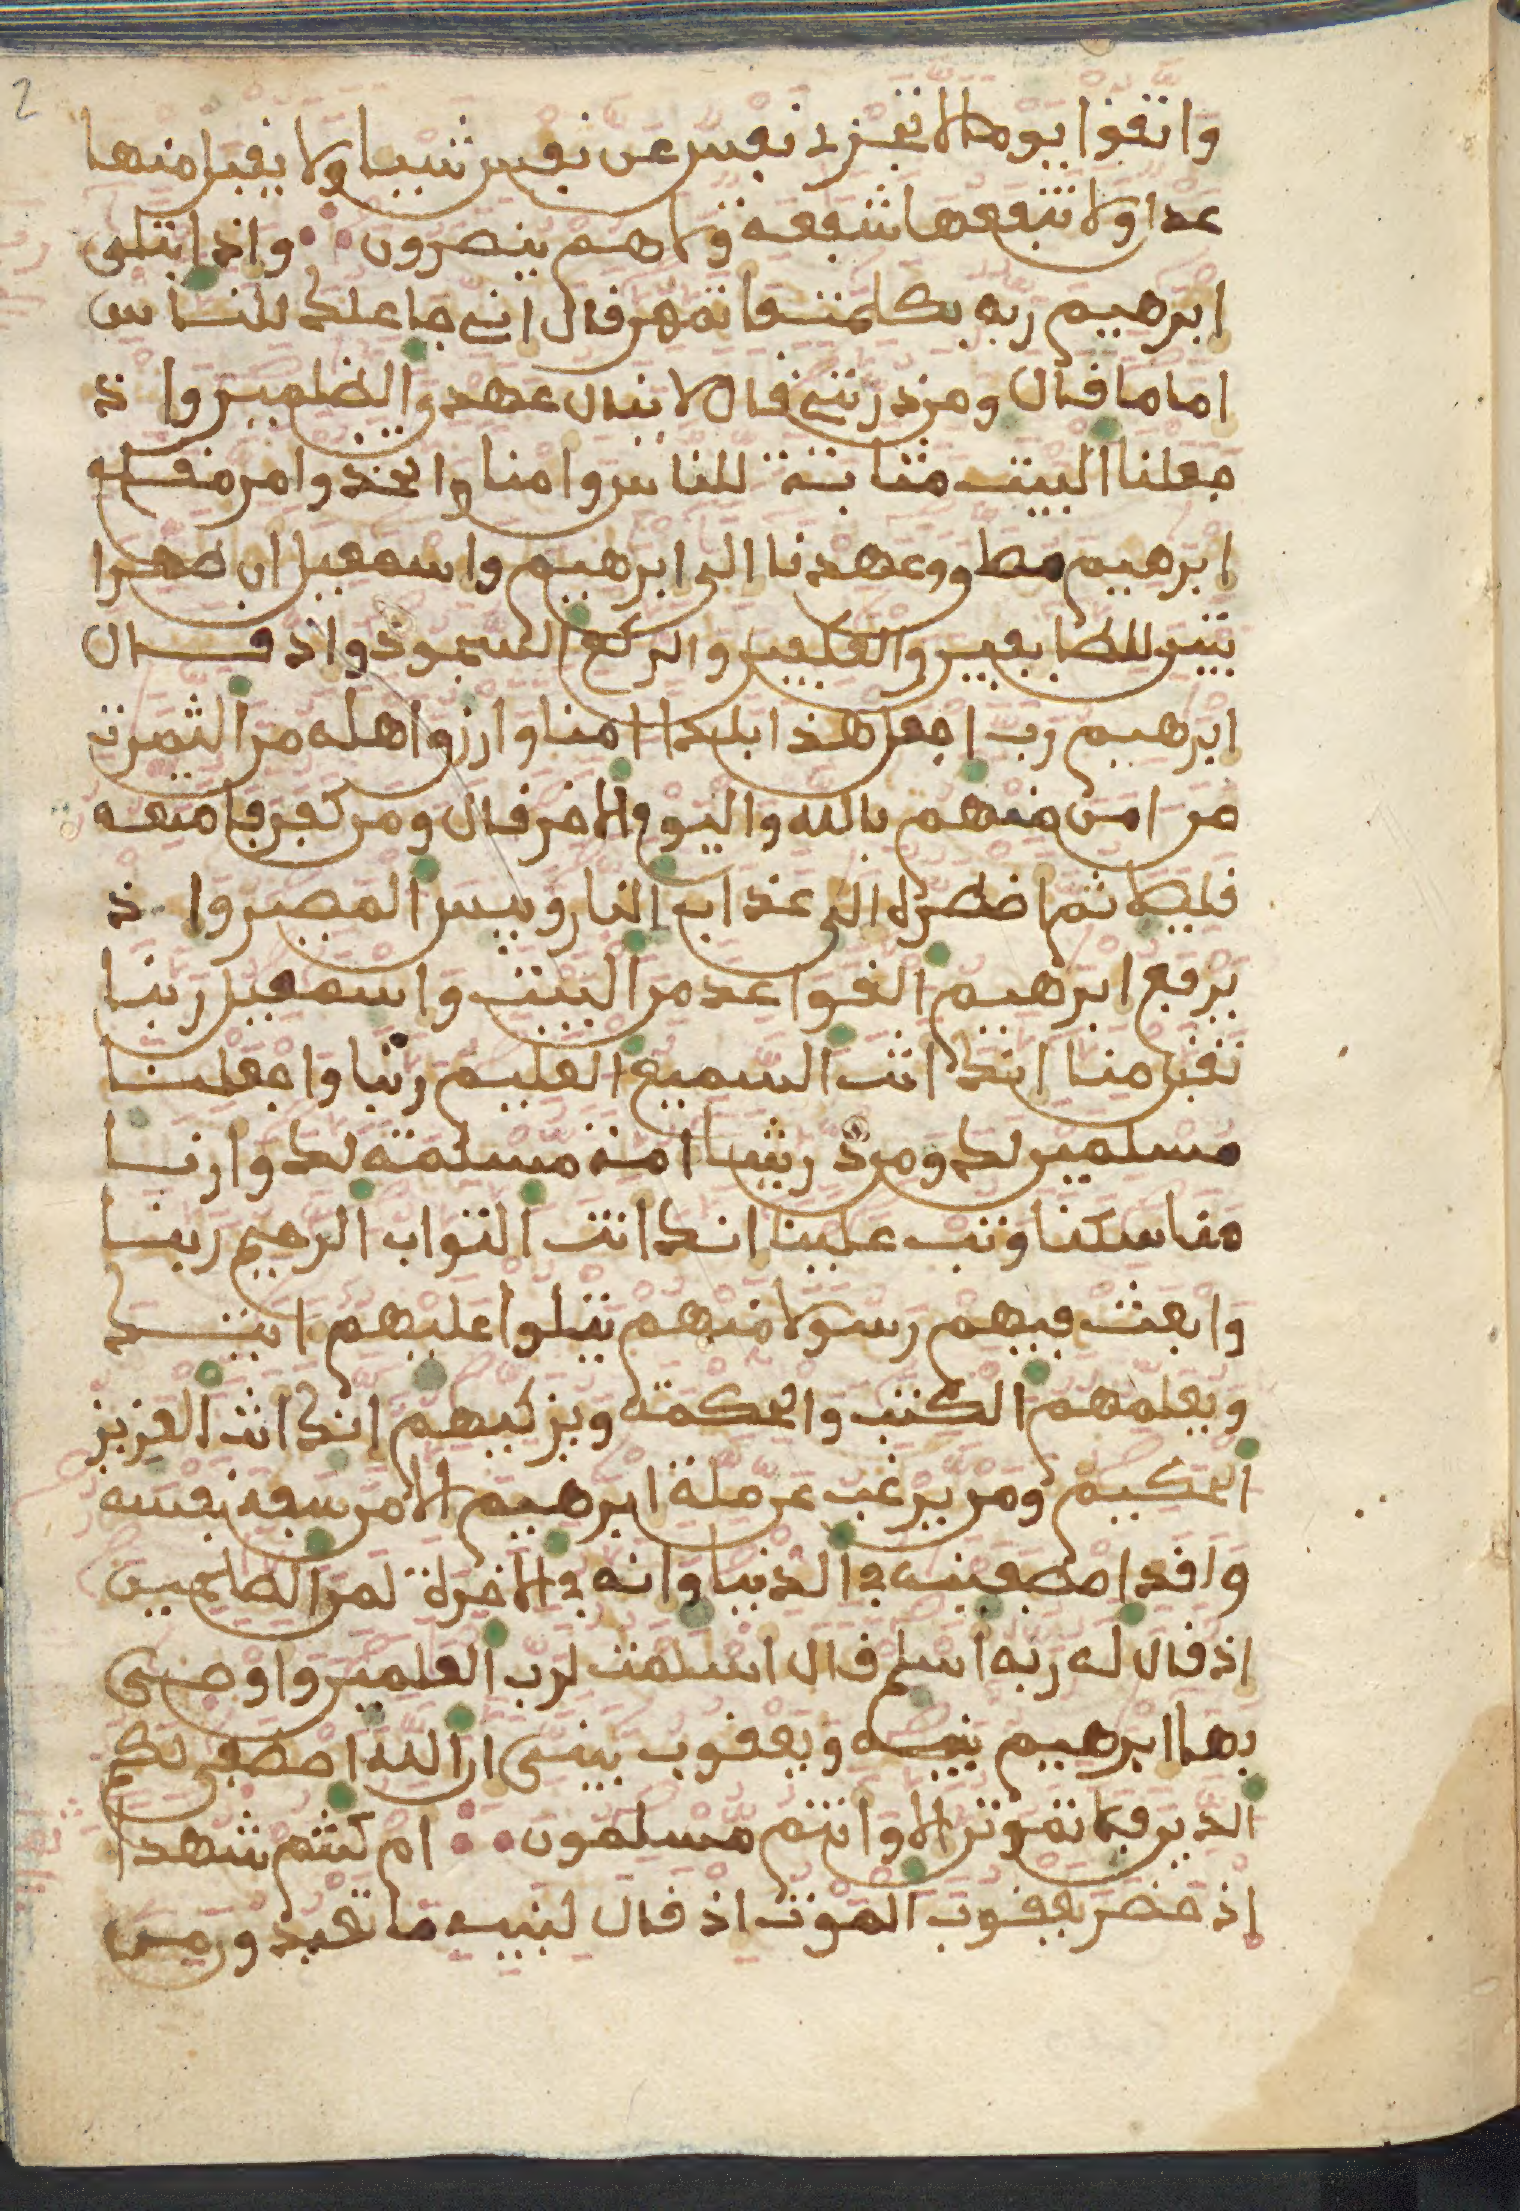 2
واتقوا يوما لا تجزي نفس عن نفس شيا ولا يقبل منها
عدل ولا تنفعها شفعة ولا هم ينصرون واذ ابتلى
ابرهيم ربه بكلمت فاتمهن قال اني جاعلك للناس
اماما قال ومن ذريتي قال لا ينال عهدي الظلمين واذ
جعلنا البيت مثابة للناس وامنا واتخذوا من مقام
ابرهيم مصلى وعهدنا الى ابرهيم واسمعيل ان طهرا
بيتي للطايفين والعكفين والركع السجود واذ قال
ابرهيم رب اجعل هذا بلدا امنا وارزق اهله من الثمرت
من امن منهم بالله واليوم الاخر قال ومن كفر فامتعه
قليلا ثم اضطره الى عذاب النار وبيس المصير واذ
يرفع ابرهيم القواعد من البيت واسمعيل ربنا
تقبل منا انك انت السميع العليم ربنا واجعلنا
مسلمين لك ومن ذريتنا امة مسلمة لك وارنا
مناسكنا وتب علينا انك انت التواب الرحيم ربنا
وابعث فيهم رسولا منهم يتلوا عليهم ايتك
ويعلمهم الكتب والحكمة ويزكيهم انك انت العزيز
الحكيم ومن يرغب عن ملة ابرهيم الا من سفه نفسه
ولقد اصطفينه في الدنيا وانه في الاخرة لمن الصلحين
اذ قال له ربه اسلم قال اسلمت لرب العلمين واوصى
بها ابرهيم بنيه ويعقوب يبنى ان الله اصطفى لكم
الدين فلا تموتن الا وانتم مسلمون ام كنتم شهدا
اذ حضر يعقوب الموت اذ قال لبنيه ما تعبدون من